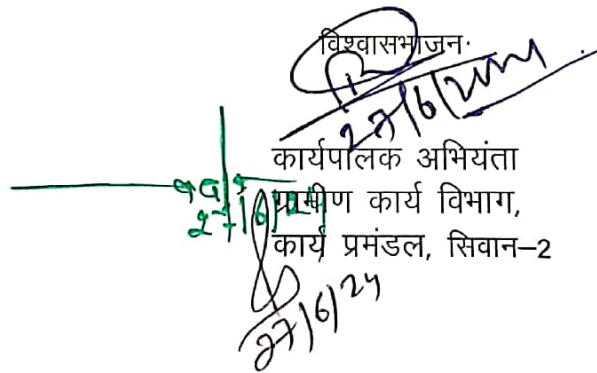 विश्वासभाजन
27/6/2024
कार्यपालक अभियंता
ग्रामीण कार्य विभाग,
27/6/24
कार्य प्रमंडल, सिवान–2
27/6/24